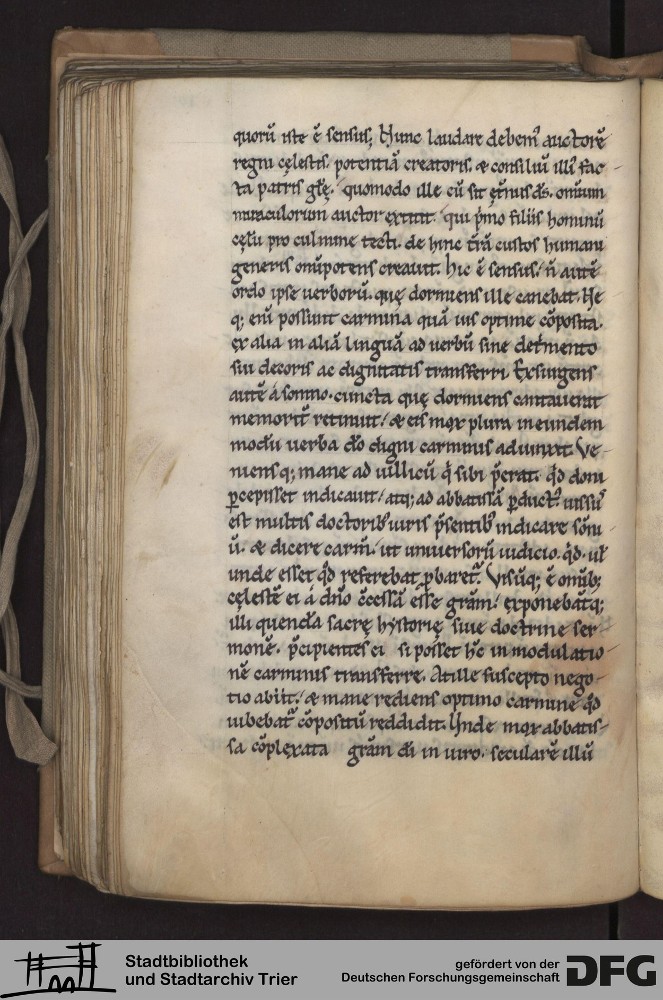 quorū iste ē sensus; Hunc laudare debem᷒ auctorē
regni cęlestis. potentiā creatoris. & consiliū illi᷒ fac
ta patris glę̄. quomodo ille cū sit ęt̄nus d̄s. omnium
miraculorum auctor extitit. qui p̄mo filiis hominū
cęlū pro culmine tecti. de hinc t̄rā custos humani
generis omīpotens creauit. Hic ē sensus. n̄ autē
ordo ipse uerborū. quę dormiens ille canebat. Ne
q; enī possunt carmina quāuis optime cōposita.
ex alia in aliā linguā ad uerbū sine det̄mento
sui decoris ac dignitatis transferri. Exsurgens
autē á somno. cuncta quę dormiens cantauerat
memorit̄ retinuit. & eis mox plura in eundem
modū uerba d̄o digni carminis adiunxit. Ve
niensq; mane ad uillicū q̄ sibi p̄erat. qd̄ doni
ꝑcepisset indicauit. atq; ad abbatissā ꝑduct᷒ iussus᷒
est multis doctorib᷒ uiris p̄sentib᷒ indicare sōni
ū. & dicere carm̄. ut uniuersorū iudicio. qd̄. ul̄
unde esset qd̄ referebat ꝓbaret᷑. Visūq; ē omīb;
cęlestē ei á dn̄o c̄cessā esse gr̄am. exponebāt̄q;
illi quendā sacrę hystorię siue doctrine ser
monē. p̄cipientes ei si posset hc̄ in modulatio
nē carminis transferre. At ille suscepto nego
tio abiit. & mane rediens optimo carmine qd̄
iubebat᷑ cōpositū reddidit. Unde mox abbatis
sa cōplexata gr̄am dī in uiro. secularē illū
Stadtbibliothek
und Stadtarchiv Trier
gefördert von der
Deutschen Forschungsgemeinschaft
DFG